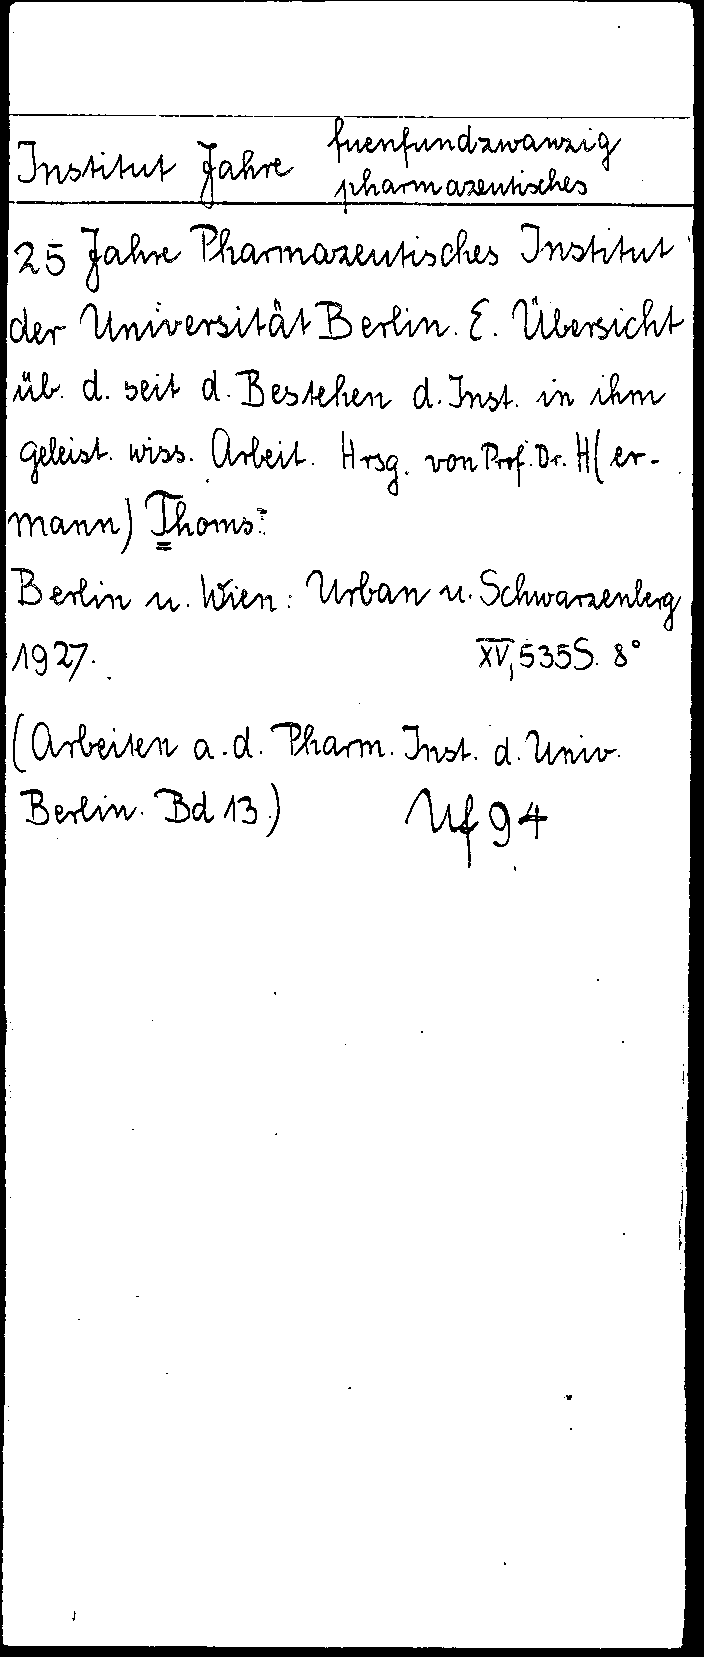 Institut Jahre fuenfundzwanzig
pharmazeutisches
25 Jahre Pharmazeutisches Institut
der Universität Berlin. E. Übersicht
üb. d. seit d. Bestehen d. Inst. in ihm
geleist. wiss. Arbeit. Hrsg. von Prof. Dr. H(er-
mann) Thoms.
Berlin u. Wien: Urban u. Schwarzenberg
1927. XV, 535 S. 8°
(Arbeiten a. d. Pharm. Inst. d. Univ.
Berlin. Bd 13.) Uf 94